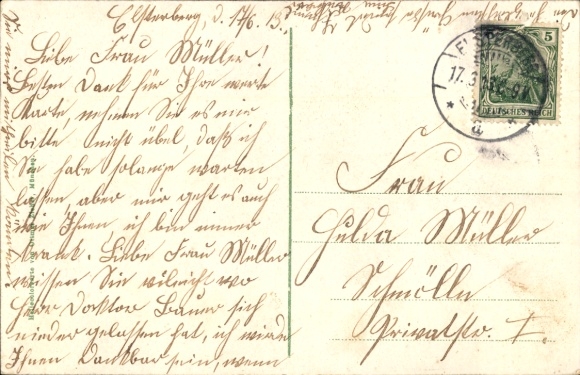 Elsterberg, d. 17/6. 13.
Liebe Frau Müller!
Besten Dank für Ihre werte
Karte, nehmen Sie es mir
bitte nicht übel, daß ich
Sie habe solange warten
lassen, aber mir geht es auch
wie Ihnen, ich bin immer
krank. Liebe Frau Müller
wissen Sie vileicht wo
Herr Doktor Bauer sich
nieder gelassen hat, ich wäre
Ihnen Dankbar sein, wenn
Sie mir mitteilen können.
ELSTERBERG
17.
a
5
DEUTSCHES REICH
Frau
Hulda Müller
Schmölln
Privatstr. I.